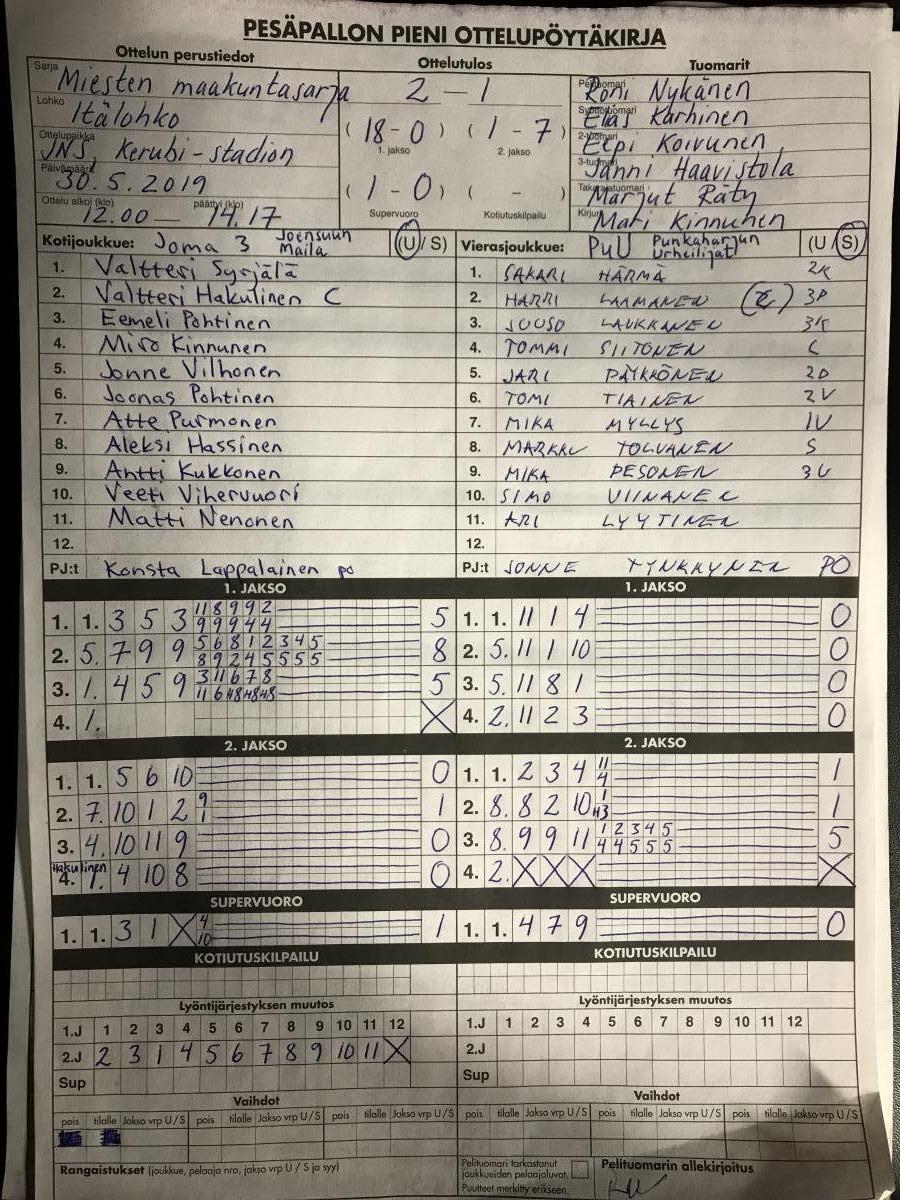 PESÄPALLON PIENI OTTELUPÖYTÄKIRJA
Ottelun perustiedot
Sarja Miesten maakuntasarja
Lohko Itälohko
Ottelupaikka JNS, Kerubi-stadion
Päivämäärä 30.5.2019
Ottelu alkoi (klo) 12.00 — päättyi (klo) 14.17
Ottelutulos
2 - 1
(18-0) (1-7)
1. jakso 2. jakso
(1-0) ( - )
Supervuoro Kotiutuskilpailu
Tuomarit
Roni Nykänen
Elias Karhinen
2-tuomari Eepi Koivunen
3-tuomari Janni Haavistola
Takarajatuomari Marjut Räty
Kirjuri Mari Kinnunen
Kotijoukkue: Joma 3 Joensuun Maila (U/S)
1. Valtteri Syrjälä
2. Valtteri Hakulinen C
3. Eemeli Pohtinen
4. Miro Kinnunen
5. Jonne Vilhonen
6. Joonas Pohtinen
7. Atte Purmonen
8. Aleksi Hassinen
9. Antti Kukkonen
10. Veeti Vihervuori
11. Matti Nenonen
12.
PJ:t Konsta Lappalainen po
Vierasjoukkue: PuU Punkaharjun Urheilijat (U/S)
1. SAKARI HÄRMÄ 2K
2. HARRI LAAMANEN 3P
3. JOUSO LAUKKANEN 3K
4. TOMMI SIITONEN C
5. JARI PÄYKKÖNEN 2P
6. TOMI TIAINEN 2V
7. MIKA MYLLYS 1V
8. MARKKU TOLVANEN S
9. MIKA PESONEN 3V
10. SIMO VIINANEN
11. ARI LYYTINEN
12.
PJ:t JONNE TYNKKYNEN PO
1. JAKSO
1. 1. 3 5 3 11 8 9 9 2 5
9 9 9 4 4
2. 5. 7 9 9 5 6 8 1 2 3 4 5 8
8 9 2 4 5 5 5 5
3. 1. 4 5 9 3 11 6 7 8 5
11 6 H8 H8 H8
4. 1. X
1. JAKSO
1. 1. 11 1 4 0
2. 5. 11 1 10 0
3. 5. 11 8 1 0
4. 2. 11 2 3 0
2. JAKSO
1. 1. 5 6 10 0
2. 7. 10 1 2 9 1
1
3. 4. 10 11 9 0
Hakulinen
4. 1. 4 10 8 0
2. JAKSO
1. 1. 2 3 4 11 1
4
2. 8. 8 2 10 1 1
H3
3. 8. 9 9 11 1 2 3 4 5 5
4 4 5 5 5
4. 2. X X X X
SUPERVUORO
1. 1. 3 1 X 4 1
10
SUPERVUORO
1. 1. 4 7 9 0
KOTIUTUSKILPAILU
KOTIUTUSKILPAILU
Lyöntijärjestyksen muutos
1.J 1 2 3 4 5 6 7 8 9 10 11 12
2.J 2 3 1 4 5 6 7 8 9 10 11 X
Sup
Lyöntijärjestyksen muutos
1.J 1 2 3 4 5 6 7 8 9 10 11 12
2.J
Sup
Vaihdot
pois tilalle Jakso vrp U/S pois tilalle Jakso vrp U/S pois tilalle Jakso vrp U/S
Vaihdot
pois tilalle Jakso vrp U/S pois tilalle Jakso vrp U/S pois tilalle Jakso vrp U/S
Rangaistukset (joukkue, pelaaja nro, jakso vrp U / S ja syy)
Pelituomari tarkastanut
joukkueiden pelaajaluvat.
Puutteet merkitty erikseen.
Pelituomarin allekirjoitus